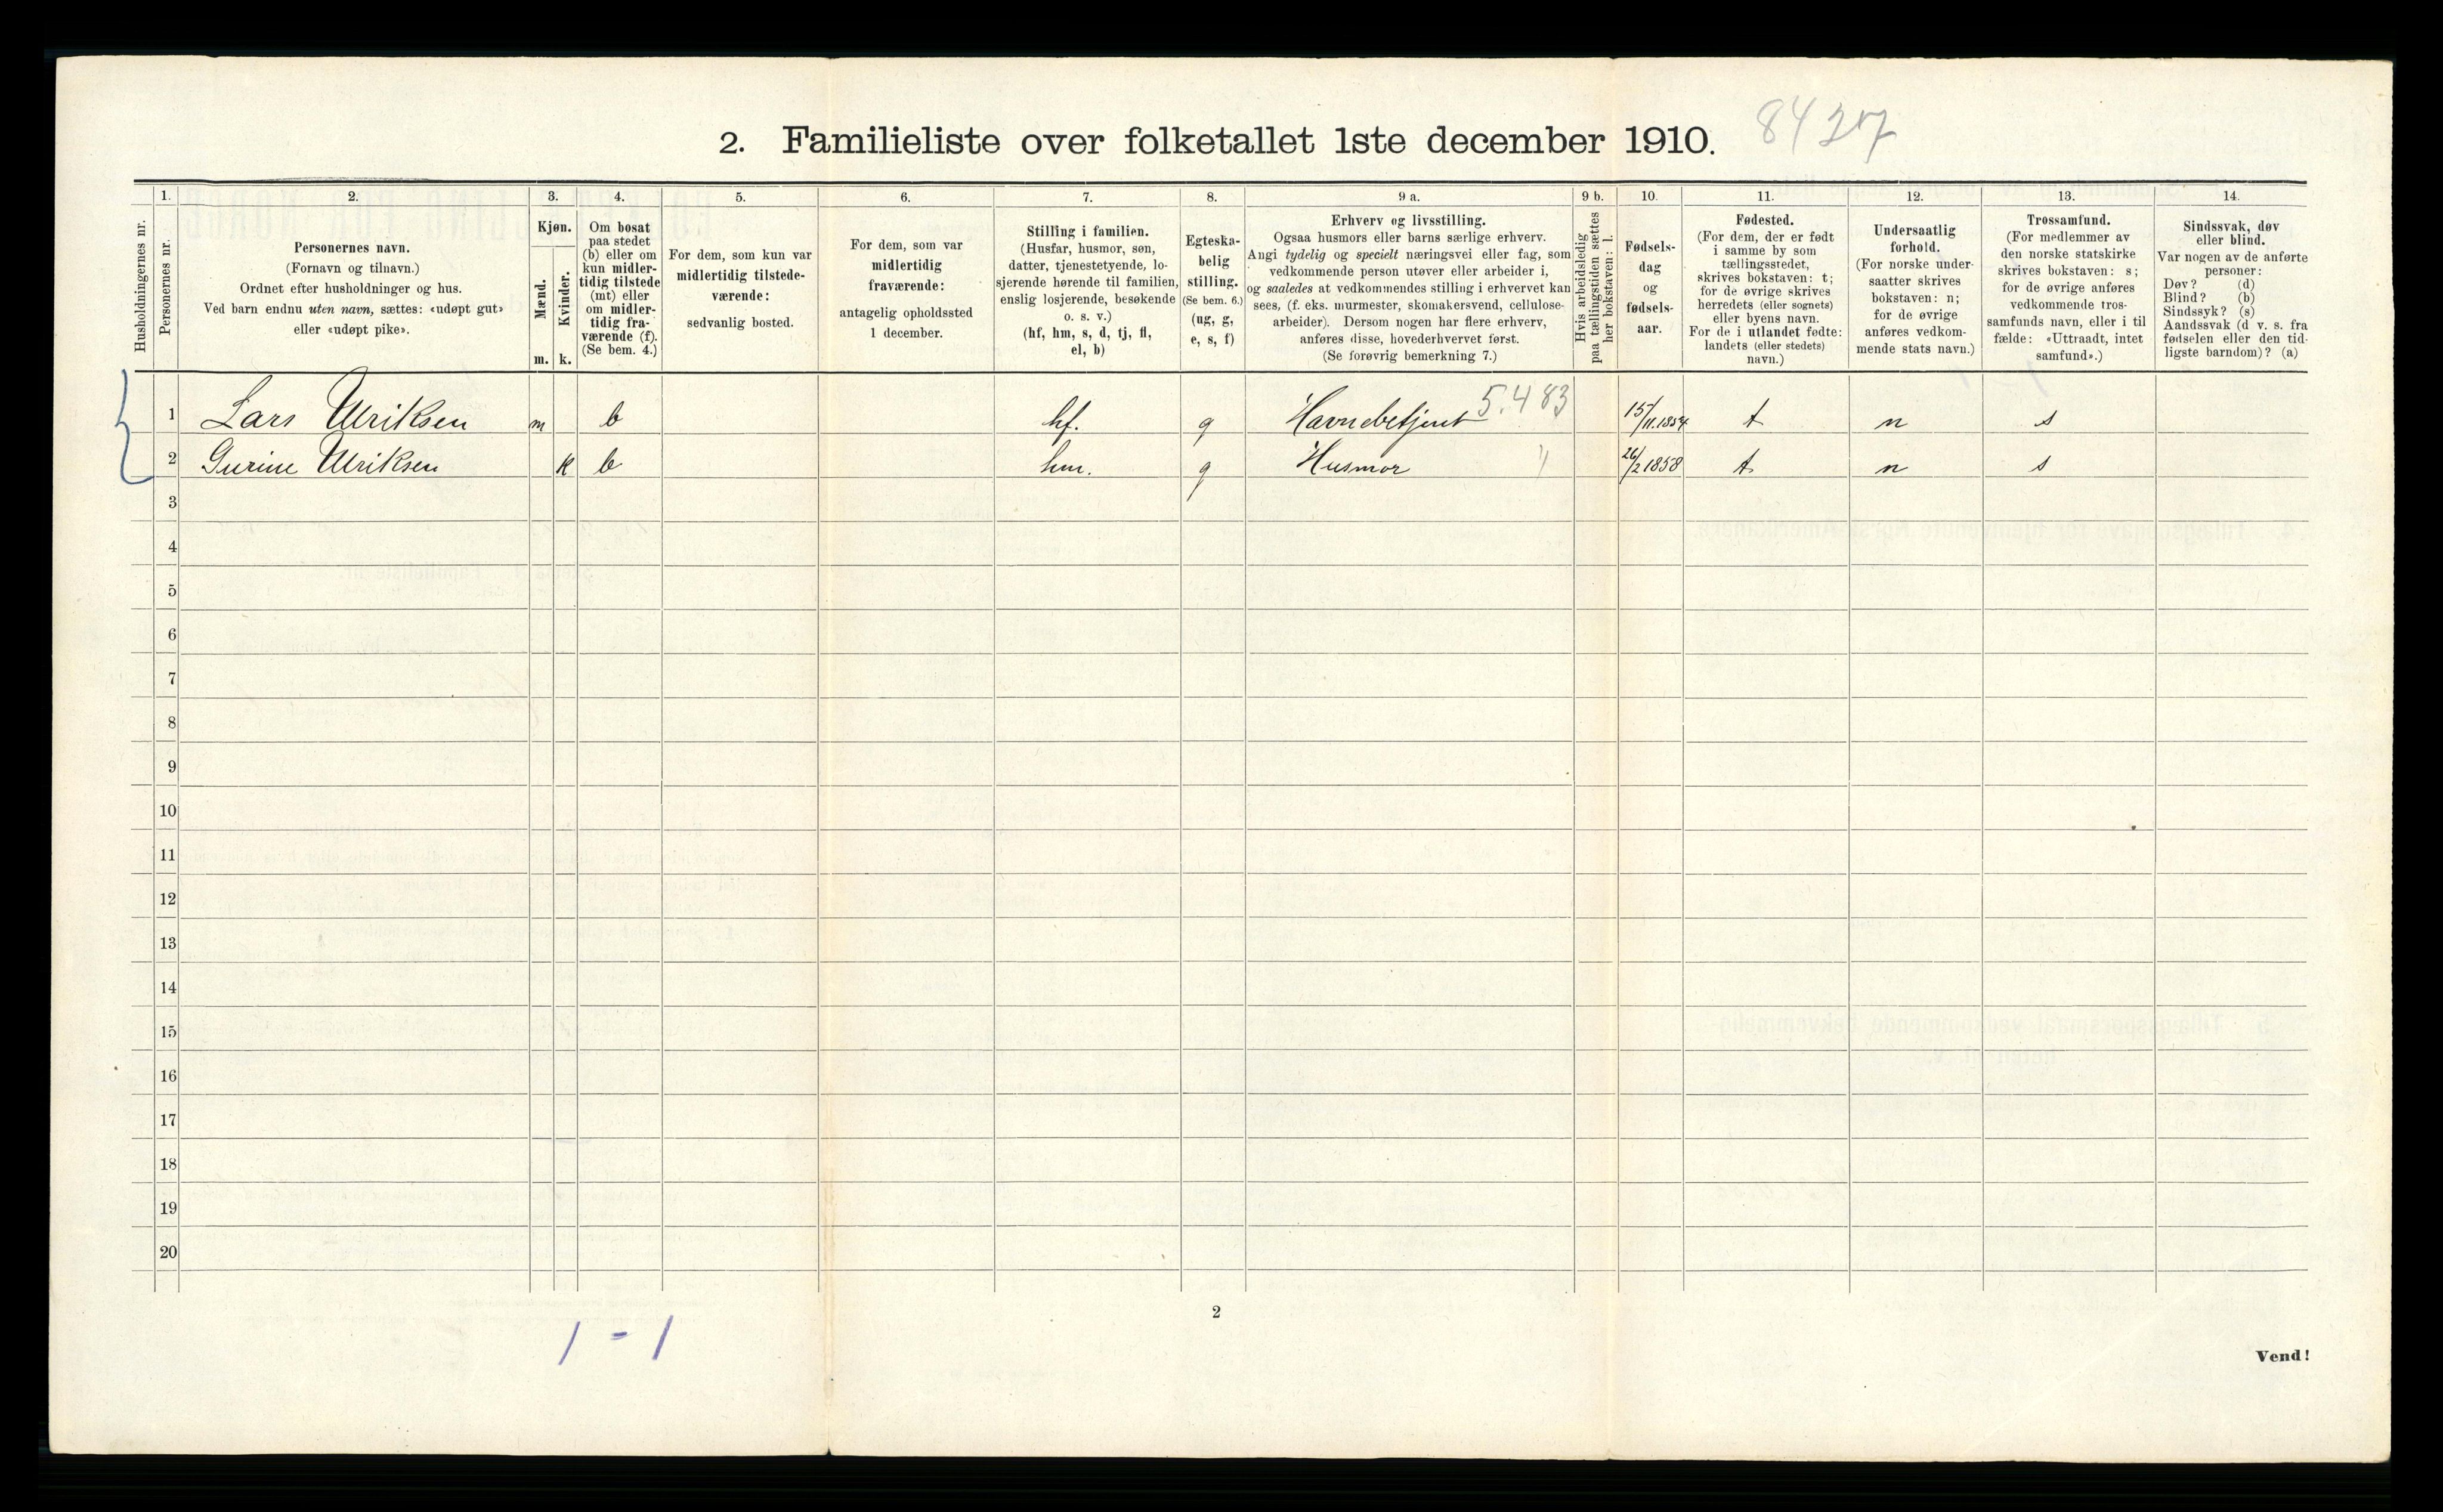 2. Familieliste over folketallet 1ste december 1910.
Husholdningernes nr.
1.
Personernes nr.
2.
Personernes navn.
(Fornavn og tilnavn.)
Ordnet efter husholdninger og hus.
Ved barn endnu uten navn, sættes: «udøpt gut»
eller «udøpt pike».
3.
Kjøn.
Mænd.
m.
Kvinder.
k.
4.
Om bosat
paa stedet
(b) eller om
kun midler-
tidig tilstede
(mt) eller
om midler-
tidig fra-
værende (f).
(Se bem. 4.)
5.
For dem, som kun var
midlertidig tilstede-
værende:
sedvanlig bosted.
6.
For dem, som var
midlertidig
fraværende:
antagelig opholdssted
1 december.
7.
Stilling i familien.
(Husfar, husmor, søn,
datter, tjenestetyende, lo-
sjerende hørende til familien,
enslig losjerende, besøkende
o. s. v.)
(hf, hm, s, d, tj, fl,
el, b)
8.
Egteska-
belig
stilling.
(Se bem. 6.)
(ug, g,
e, s, f)
9 a.
Erhverv og livsstilling.
Ogsaa husmors eller barns særlige erhverv.
Angi tydelig og specielt næringsvei eller fag, som
vedkommende person utøver eller arbeider i,
og saaledes at vedkommendes stilling i erhvervet kan
sees, (f. eks. murmester, skomakersvend, cellulose-
arbeider). Dersom nogen har flere erhverv,
anføres disse, hovederhvervet først.
(Se forøvrig bemerkning 7.)
9 b.
Hvis arbeidsledig
paa tællingstiden sættes
her bokstaven: l.
10.
Fødsels-
dag
og
fødsels-
aar.
11.
Fødested.
(For dem, der er født
i samme by som
tællingsstedet,
skrives bokstaven: t;
for de øvrige skrives
herredets (eller sognets)
eller byens navn.
For de i utlandet fødte:
landets (eller stedets)
navn.)
12.
Undersaatlig
forhold.
(For norske under-
saatter skrives
bokstaven: n;
for de øvrige
anføres vedkom-
mende stats navn.)
13.
Trossamfund.
(For medlemmer av
den norske statskirke
skrives bokstaven: s;
for de øvrige anføres
vedkommende tros-
samfunds navn, eller i til
fælde: «Uttraadt, intet
samfund».)
14.
Sindssvak, døv
eller blind.
Var nogen av de anførte
personer:
Døv? (d)
Blind? (b)
Sindssyk? (s)
Aandssvak (d v. s. fra
fødselen eller den tid-
ligste barndom)? (a)
1 Lars Ulriksen m b hf. g Havnebetjent 5.483 15/11.1854 t n s
2 Gurine Ulriksen k b hm. g Husmor " 26/2 1858 t n s
3
4
5
6
7
8
9
10
11
12
13
14
15
16
17
18
19
20
2
1 - 1
Vend!